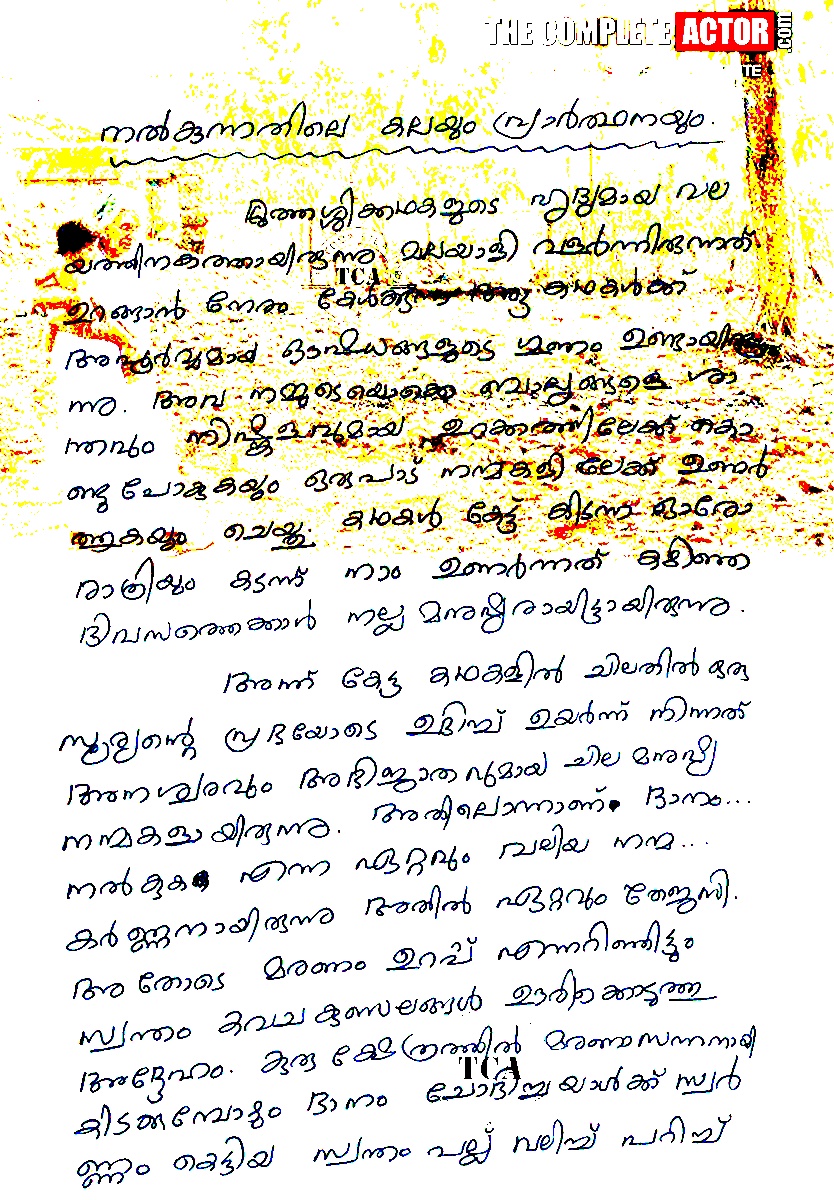 THE COMPLETE ACTOR .com
നൽകുന്നതിലെ കലയും പ്രാർത്ഥനയും.
മുത്തശ്ശിക്കഥകളുടെ ഹൃദ്യമായ വല
യത്തിനകത്തായിരുന്നു മലയാളി വളർന്നിരുന്നത്
TCA
ഉറങ്ങാൻ നേരം കേൾക്കുന്ന കഥകൾക്ക്
അപൂർവ്വമായ ഔഷധങ്ങളുടെ ഗുണം ഉണ്ടായിരു
ന്നു. അവ നമ്മുടെയൊക്കെ ബാല്യങ്ങളെ ശാ
ന്തവും നിഷ്കളവുമായ ഉറക്കത്തിലേക്ക് കൊ
ണ്ടു പോകുകയും ഒരുപാട് നന്മകളിലേക്ക് ഉണർ
ത്തുകയും ചെയ്തു. കഥകൾ കേട്ട് കിടന്ന ഓരോ
രാത്രിയും കടന്ന് നാം ഉണർന്നത് കഴിഞ്ഞ
ദിവസത്തെക്കാൾ നല്ല മനുഷ്യരായിട്ടായിരുന്നു.
അന്ന് കേട്ട കഥകളിൽ ചിലതിൽ ഒരു
സൂര്യന്റെ പ്രഭയോടെ ഉദിച്ച് ഉയർന്ന് നിന്നത്
അനശ്വരവും അഭിജാതവുമായ ചില മനുഷ്യ
നന്മകളായിരുന്നു. അതിലൊന്നാണ് ദാനം...
നൽകുക എന്ന ഏറ്റവും വലിയ നന്മ...
കർണ്ണനായിരുന്നു അതിൽ ഏറ്റവും തേജസി.
അതോടെ മരണം ഉറപ്പ് എന്നറിഞ്ഞിട്ടും
സ്വന്തം കവച കുണ്ഡലങ്ങൾ ഊരിക്കൊടുത്തു
അദ്ദേഹം. കുരുക്ഷേത്രത്തിൽ മരണാസന്നനായി
TCA
കിടക്കുമ്പോഴും ദാനം ചോദിച്ചയാൾക്ക് സ്വർ
ണ്ണം കെട്ടിയ സ്വന്തം പല്ല് വലിച്ച് പറിച്ച്